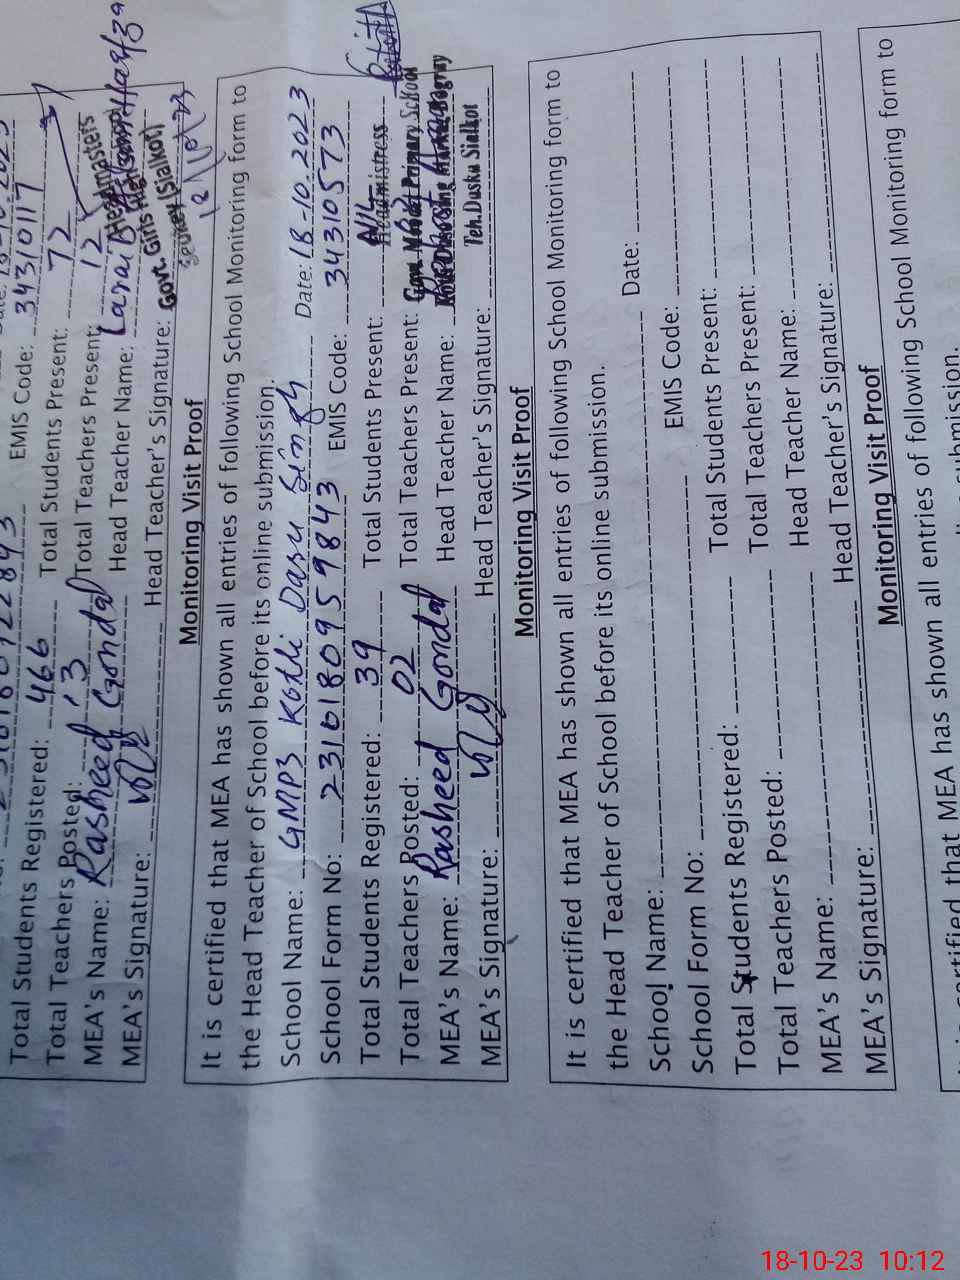 EMIS Code: 34310117
Total Students Registered: 466 Total Students Present: 72
Total Teachers Posted: 13 Total Teachers Present: 12
MEA's Name: Rasheed Gondal Head Teacher Name:
MEA's Signature: Head Teacher's Signature:
Govt. Girls High
(Sialkot)
Monitoring Visit Proof
It is certified that MEA has shown all entries of following School Monitoring form to
the Head Teacher of School before its online submission.
School Name: GMPS Kotli Dasu Singh Date: 18-10.2023
School Form No: 2310180959843 EMIS Code: 34310573
Total Students Registered: 39 Total Students Present: NIL
Total Teachers Posted: 02 Total Teachers Present:
MEA's Name: Rasheed Gondal Head Teacher Name:
MEA's Signature: Head Teacher's Signature:
Headmistress
Govt. Model Primary School
Teh. Daska Sialkot
Monitoring Visit Proof
It is certified that MEA has shown all entries of following School Monitoring form to
the Head Teacher of School before its online submission.
School Name: Date:
School Form No: EMIS Code:
Total Students Registered: Total Students Present:
Total Teachers Posted: Total Teachers Present:
MEA's Name: Head Teacher Name:
MEA's Signature: Head Teacher's Signature:
Monitoring Visit Proof
certified that MEA has shown all entries of following School Monitoring form to
submission.
18-10-23 10:12